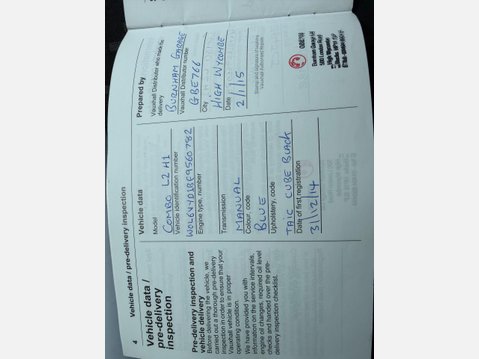 4
Vehicle data / pre-delivery inspection
Vehicle data /
pre-delivery
inspection
Pre-delivery inspection and
vehicle delivery
Before delivering the vehicle, we
carried out a thorough pre-delivery
inspection in order to ensure that your
Vauxhall vehicle is in proper
operating condition.
We have provided you with
information on the service intervals,
engine oil changes, required oil level
checks and handed over the pre-
delivery inspection checklist.
Vehicle data
Model
COMBO L2 H1
Vehicle identification number
Engine type, number
Transmission
MANUAL
Colour, code
BLUE
Upholstery, code
TAIC CUBE BLACK
Date of first registration
31/12/14
Prepared by
Vauxhall Distributor who made the
delivery
BURNHAM GARAGE
Vauxhall Distributor number
GBE766
City
HIGH WYCOMBE
Date
2/1/15